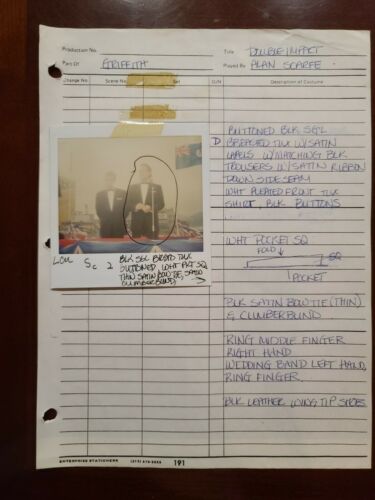 Production No. Title DOUBLE IMPACT
Part Of GRIFFITH Played By ALAN SCARFE
Change No. Scene No. Set D/N Description of Costume
BUTTONED BLK SGL
D BREASTED TUX W/SATIN
LAPELS W/MATCHING BLK
TROUSERS W/SATIN RIBBON
DOWN SIDE SEAM
WHT PLEATED FRONT TUX
SHIRT, BLK BUTTONS
WHT POCKET SQ
FOLD
SQ
POCKET
BLK SATIN BOW TIE (THIN)
& CUMBERBUND
RING MIDDLE FINGER
RIGHT HAND
WEDDING BAND LEFT HAND,
RING FINGER.
BLK LEATHER WING TIP SHOES
Sc 2 BLK SGL BRSTD TUX
BUTTONED, WHT PKT SQ
THIN SATIN BOW TIE, SATIN
CUMBERBUND
ENTERPRISE STATIONERS 191